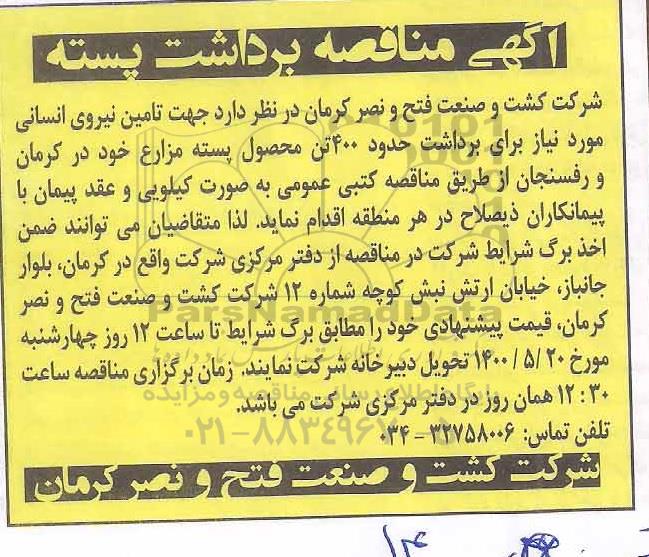 آگهی مناقصه برداشت پسته
شرکت کشت و صنعت فتح و نصر کرمان در نظر دارد جهت تامین نیروی انسانی
مورد نیاز برای برداشت حدود ۴۰۰تن محصول پسته مزارع خود در کرمان
و رفسنجان از طریق مناقصه کتبی عمومی به صورت کیلویی و عقد پیمان با
پیمانکاران ذیصلاح در هر منطقه اقدام نماید. لذا متقاضیان می توانند ضمن
اخذ برگ شرایط شرکت در مناقصه از دفتر مرکزی شرکت واقع در کرمان، بلوار
جانباز، خیابان ارتش نبش کوچه شماره ۱۲ شرکت کشت و صنعت فتح و نصر
کرمان، قیمت پیشنهادی خود را مطابق برگ شرایط تا ساعت ۱۲ روز چهارشنبه
مورخ ۲۰ /۵/ ۱۴۰۰ تحویل دبیرخانه شرکت نمایند. زمان برگزاری مناقصه ساعت
۱۲:۳۰ همان روز در دفتر مرکزی شرکت می باشد.
تلفن تماس: ۳۲۷۵۸۰۰۶ - ۰۳۴
شرکت کشت و صنعت فتح و نصر کرمان
ParsNamadData
پایگاه اطلاع رسانی مناقصه و مزایده
۰۲۱-۸۸۳۴۹۶۷۰